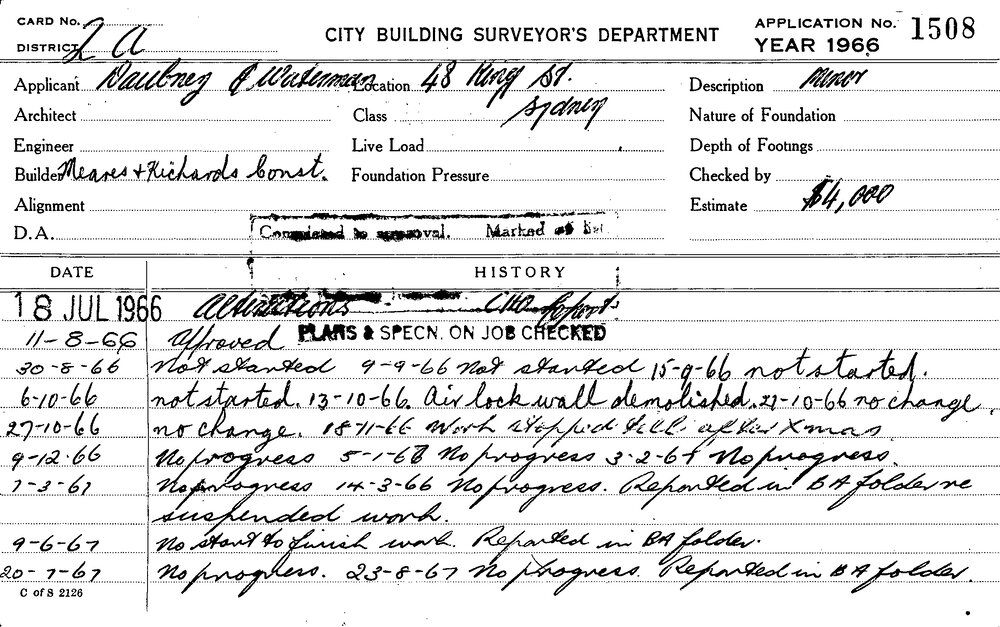 CARD No.
DISTRICT 2 A
CITY BUILDING SURVEYOR'S DEPARTMENT
APPLICATION No. 1508
YEAR 1966
Applicant Daubney & Waterman Location 48 King St. Description Minor
Architect Class Sydney Nature of Foundation
Engineer Live Load Depth of Footings
Builder Meares + Richards Const. Foundation Pressure Checked by
Alignment Estimate $4,000
D.A. Completed to approval. Marked
DATE HISTORY
18 JUL 1966 Alterations
11-8-66 Approved PLANS & SPECN. ON JOB CHECKED
30-8-66 Not started 9-9-66 Not started 15-9-66 not started.
6-10-66 not started. 13-10-66. Air lock wall demolished. 21-10-66 no change.
27-10-66 no change. 18-11-66 Work stopped till after Xmas
9-12-66 No progress 5-1-67 No progress 3-2-67 No progress.
7-3-67 No progress 14-3-66 No progress. Reported in BA folder re
suspended work.
9-6-67 No start to finish work. Reported in BA folder.
20-7-67 No progress. 23-8-67 No progress. Reported in BA folder.
C of S 2126